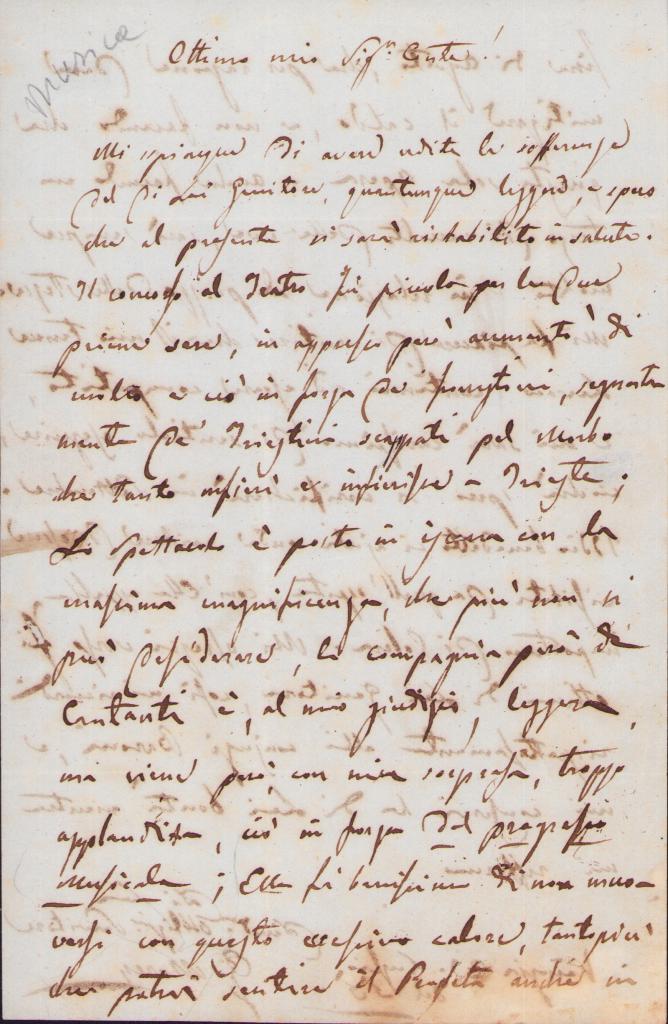 Musica
Ottimo mio Sigr. Conte!
Mi spiacque di avere udite le sofferenze
del di Lei Genitore, quantunque leggere, e spero
che al presente si sarà ristabilito in salute.
Il concorso al Teatro fu piccolo per le due
prime sere, in appresso però aumentò di
molto e ciò in forza de' forestieri, segnata
mente de' Triestini scappati pel Morbo
che tanto infierì e infierisce a Trieste;
Lo Spettacolo è posto in iscena con la
massima magnificenza, che più non si
può desiderare, la compagnia però di
Cantanti è, al mio giudizio, leggera,
ma viene però, con mia sorpresa, troppo
applaudita, ciò in forza del progresso
Musicale; Ella fa benissimo di non muo-
versi con questo eccessivo calore, tantopiù
che potrà sentire il Profeta anche in